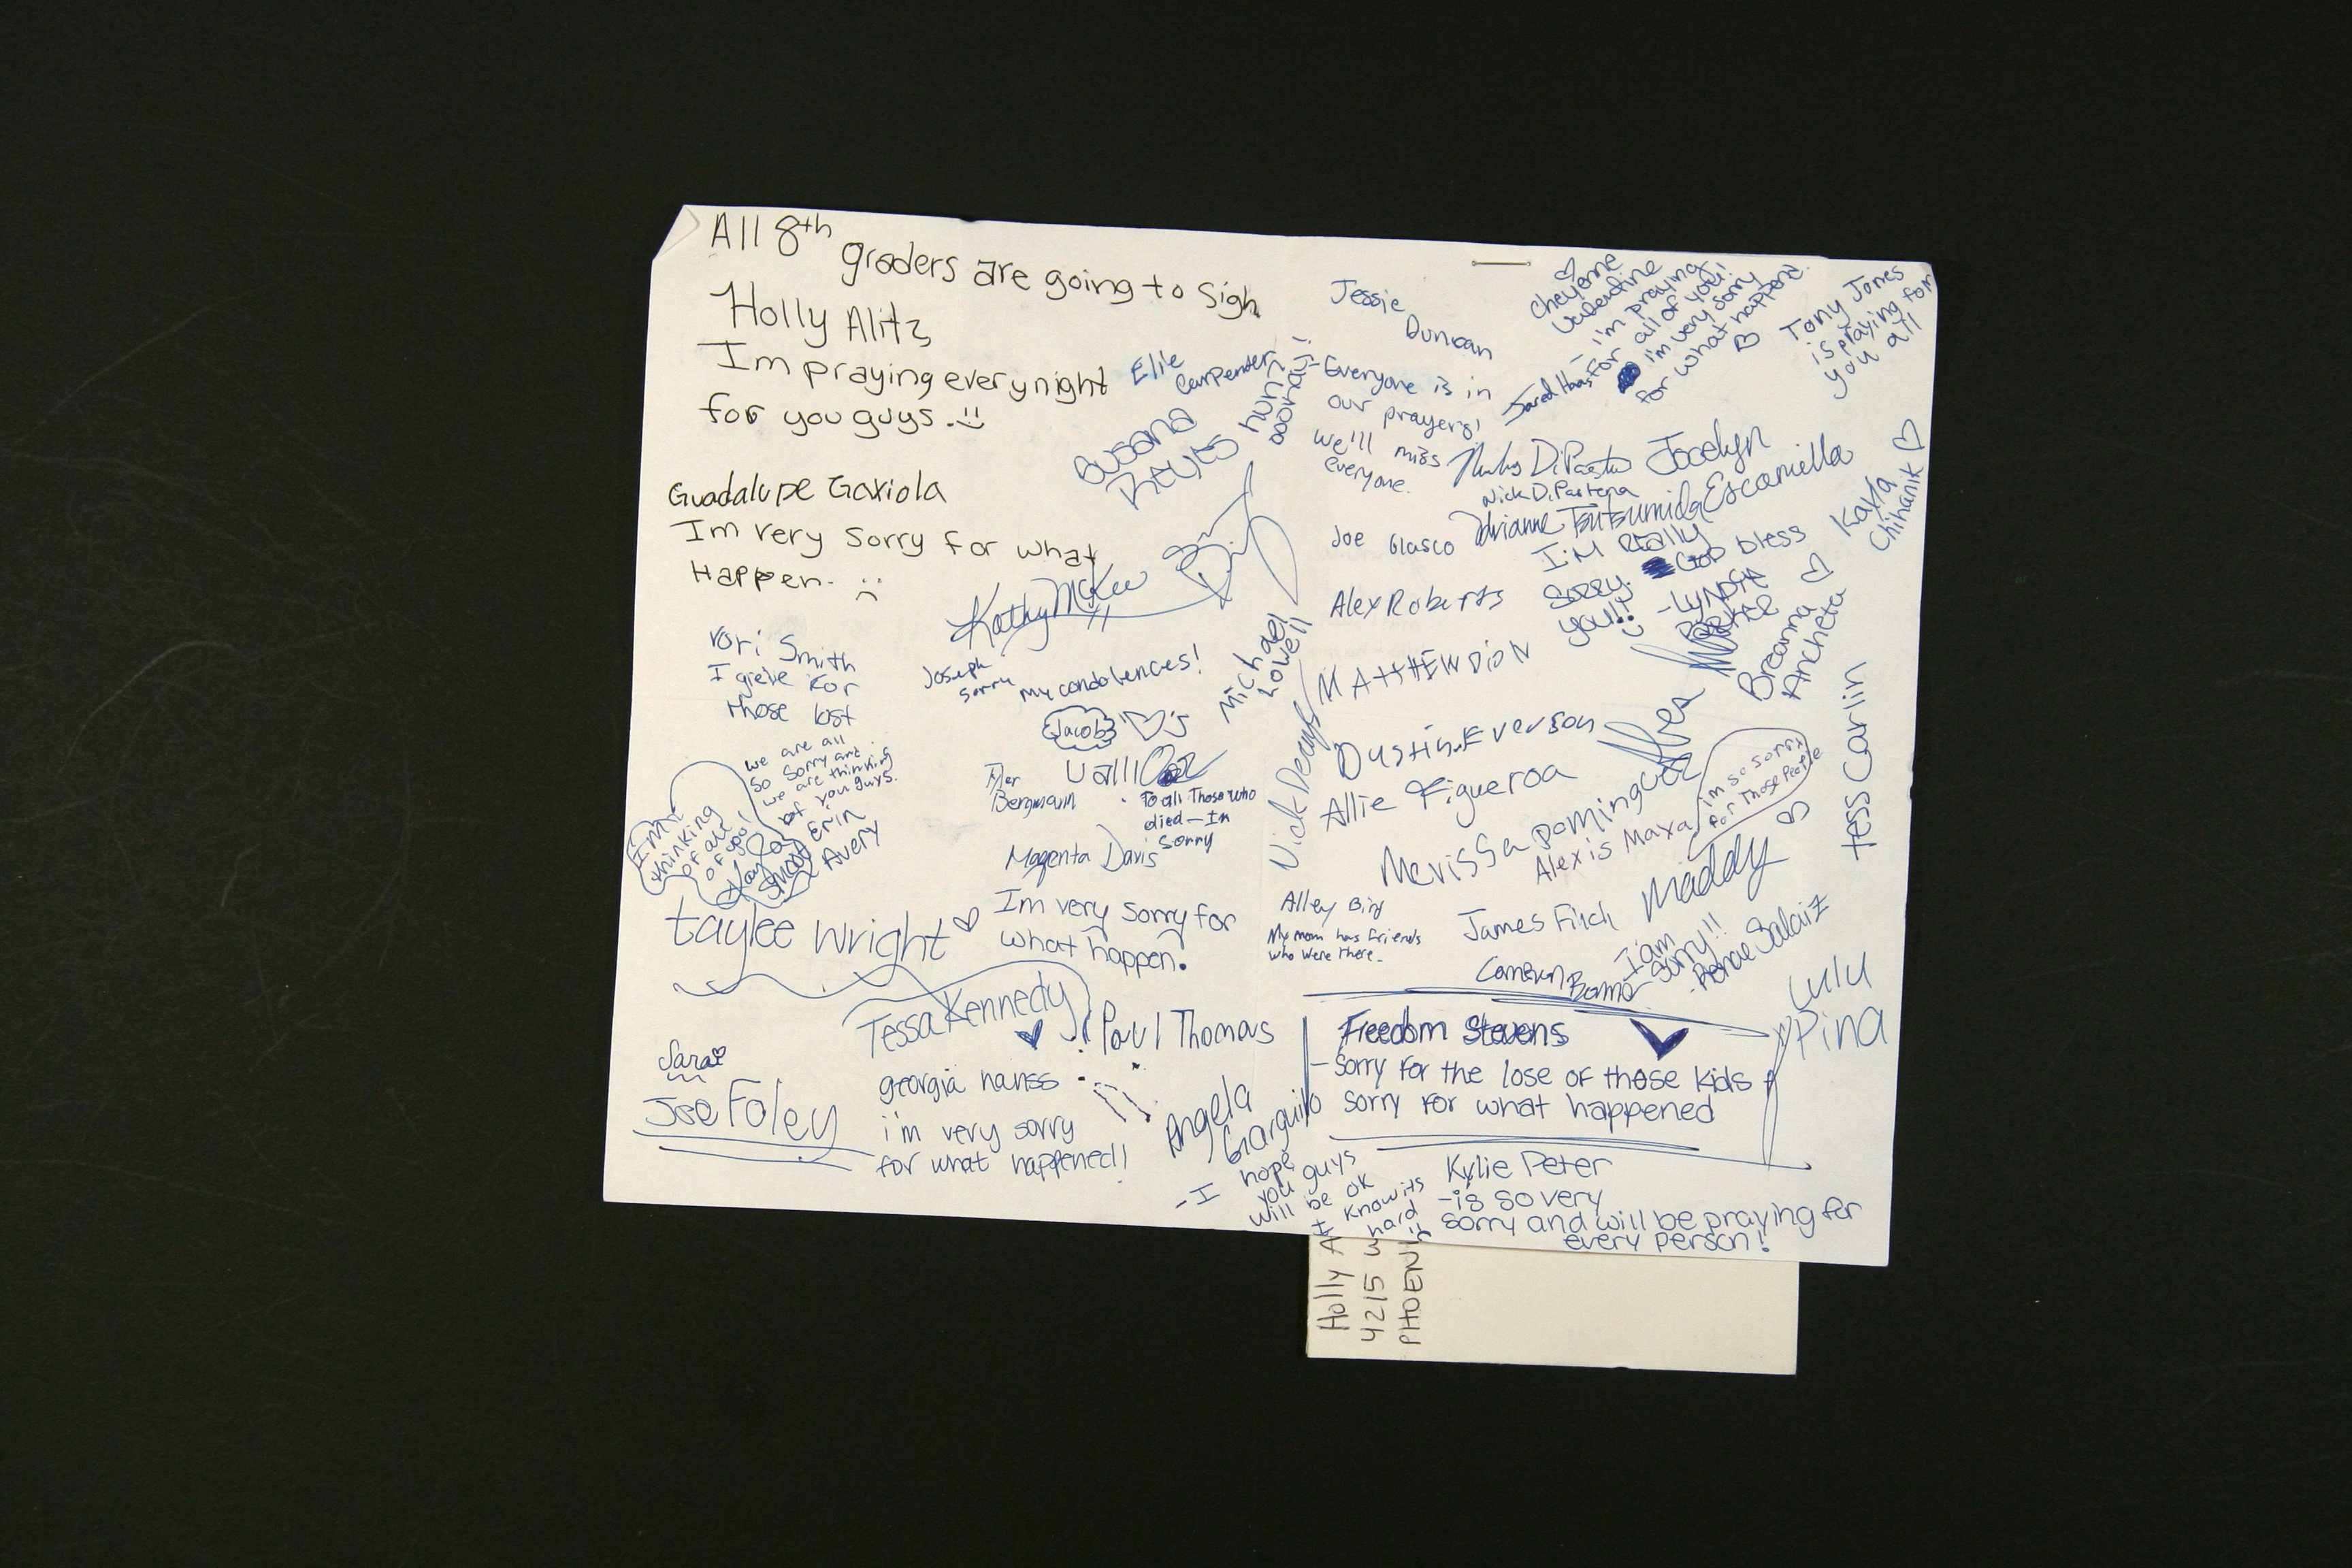 All 8th
graders are going to sign
Holly Alitz
Im praying every night
for you guys.
Guadalupe Gaxiola
Im very sorry for what
Happen.
Tori Smith
I grieve for
those lost
we are all
so sorry and
we are thinking
of you guys.
Erin
Avery
I'm
thinking
of all
of you!
taylee wright
Sara
Joe Foley
Elie
Carpenter
Susana
Reyes
Kathy McKee
Joseph
sorry
my condolences!
Jacob
Bergmann
To all Those who
died—Im
sorry
Magenta Davis
Im very sorry for
what happen.
Tessa Kennedy
Paul Thomas
georgia hanss
i'm very sorry
for what happened!
Angela
Garguilo
-I hope
you guys
will be ok
I know its
hard
Jessie
Duncan
-Everyone is in
our prayers!
we'll miss
everyone.
Cheyenne
Valentine
- i'm praying
for all of you!
i'm very sorry
for what happend.
Tony Jones
is praying for
you all
Nick DiPastena
Jocelyn
Escamilla
Joe Glasco
Adrianne Tsutsumida
I'm Really
Sorry. God bless
you!!
-Lyndsia
Kayla
Chihanik
Alex Roberts
Breanna
Ancheta
Michael
Lowell
MAttHEW DioN
Dustin Everson
Allie Figueroa
Merissa Dominguez
Alexis Maxa
im so sorry
for those People
Tess Carlin
Maddy
Alley Bing
My mom has friends
who were there.
James Fitch
Cameron
I am
sorry!!
-Renae Salaiz
Lulu
Pina
Freedom Stevens
-Sorry for the lose of those kids
sorry for what happened
Kylie Peter
-is so very
sorry and will be praying for
every person!
Holly A
4215 W
PHOENI